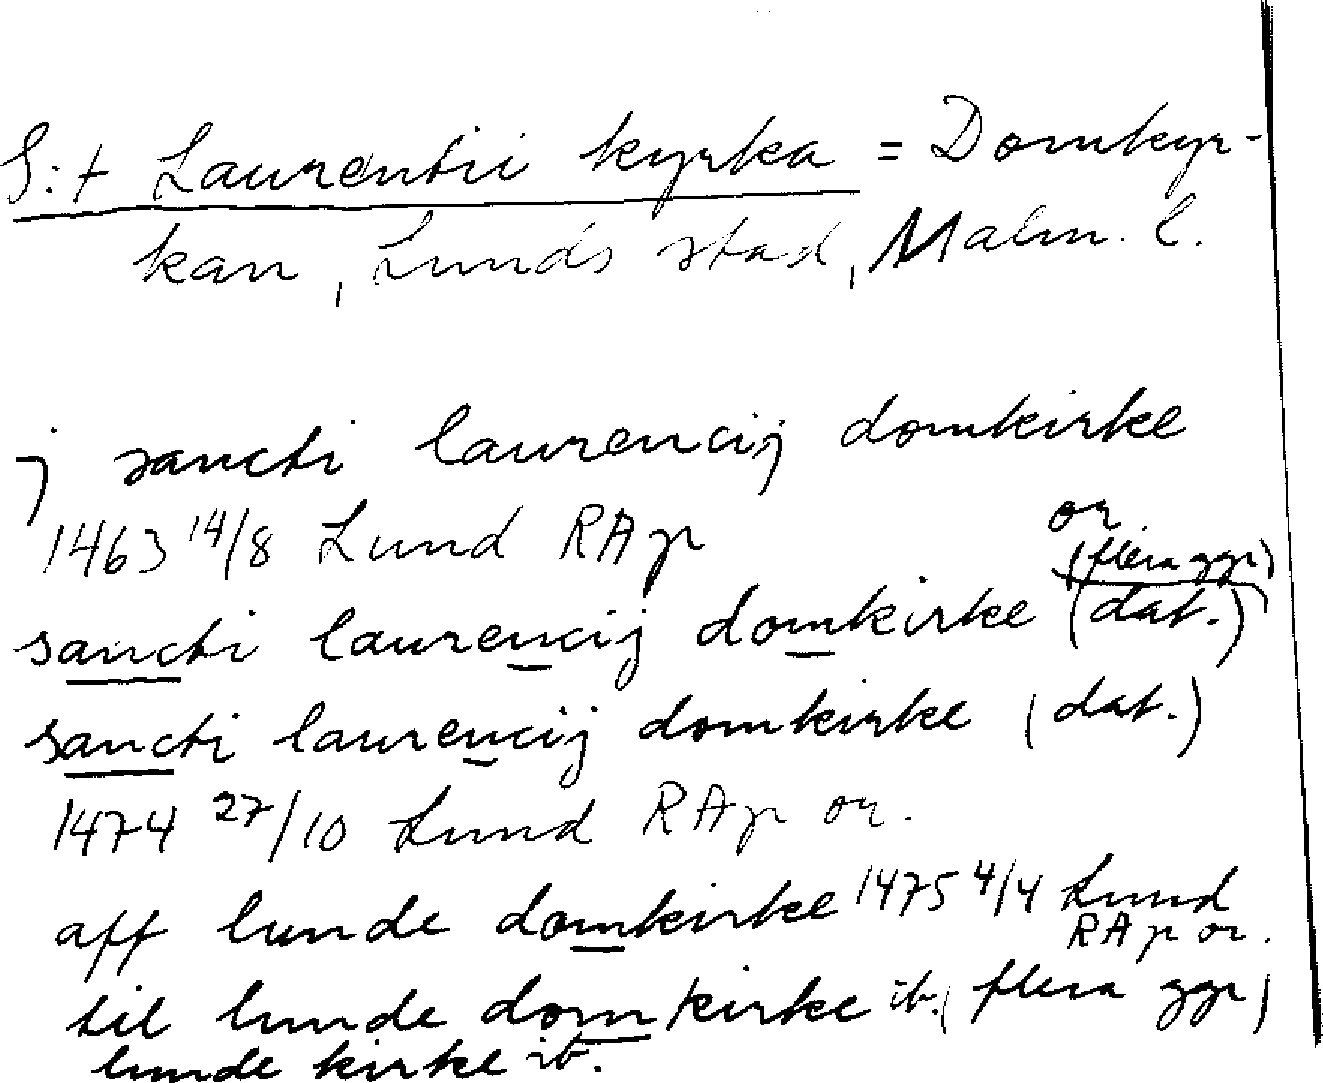 S:t Laurentii kyrka = Domkyr-
kan, Lunds stad, Malm. l.
j sancti laurencij domkirke
1463 14/8 Lund RAp or.
(flera ggr)
sancti laurencij domkirke (dat.)
sancti laurencij domkirke (dat.)
1474 27/10 Lund RAp or.
aff lunde domkirke 1475 4/4 Lund
RAp or.
til lunde domkirke ib. (flera ggr)
lunde kirke ib.